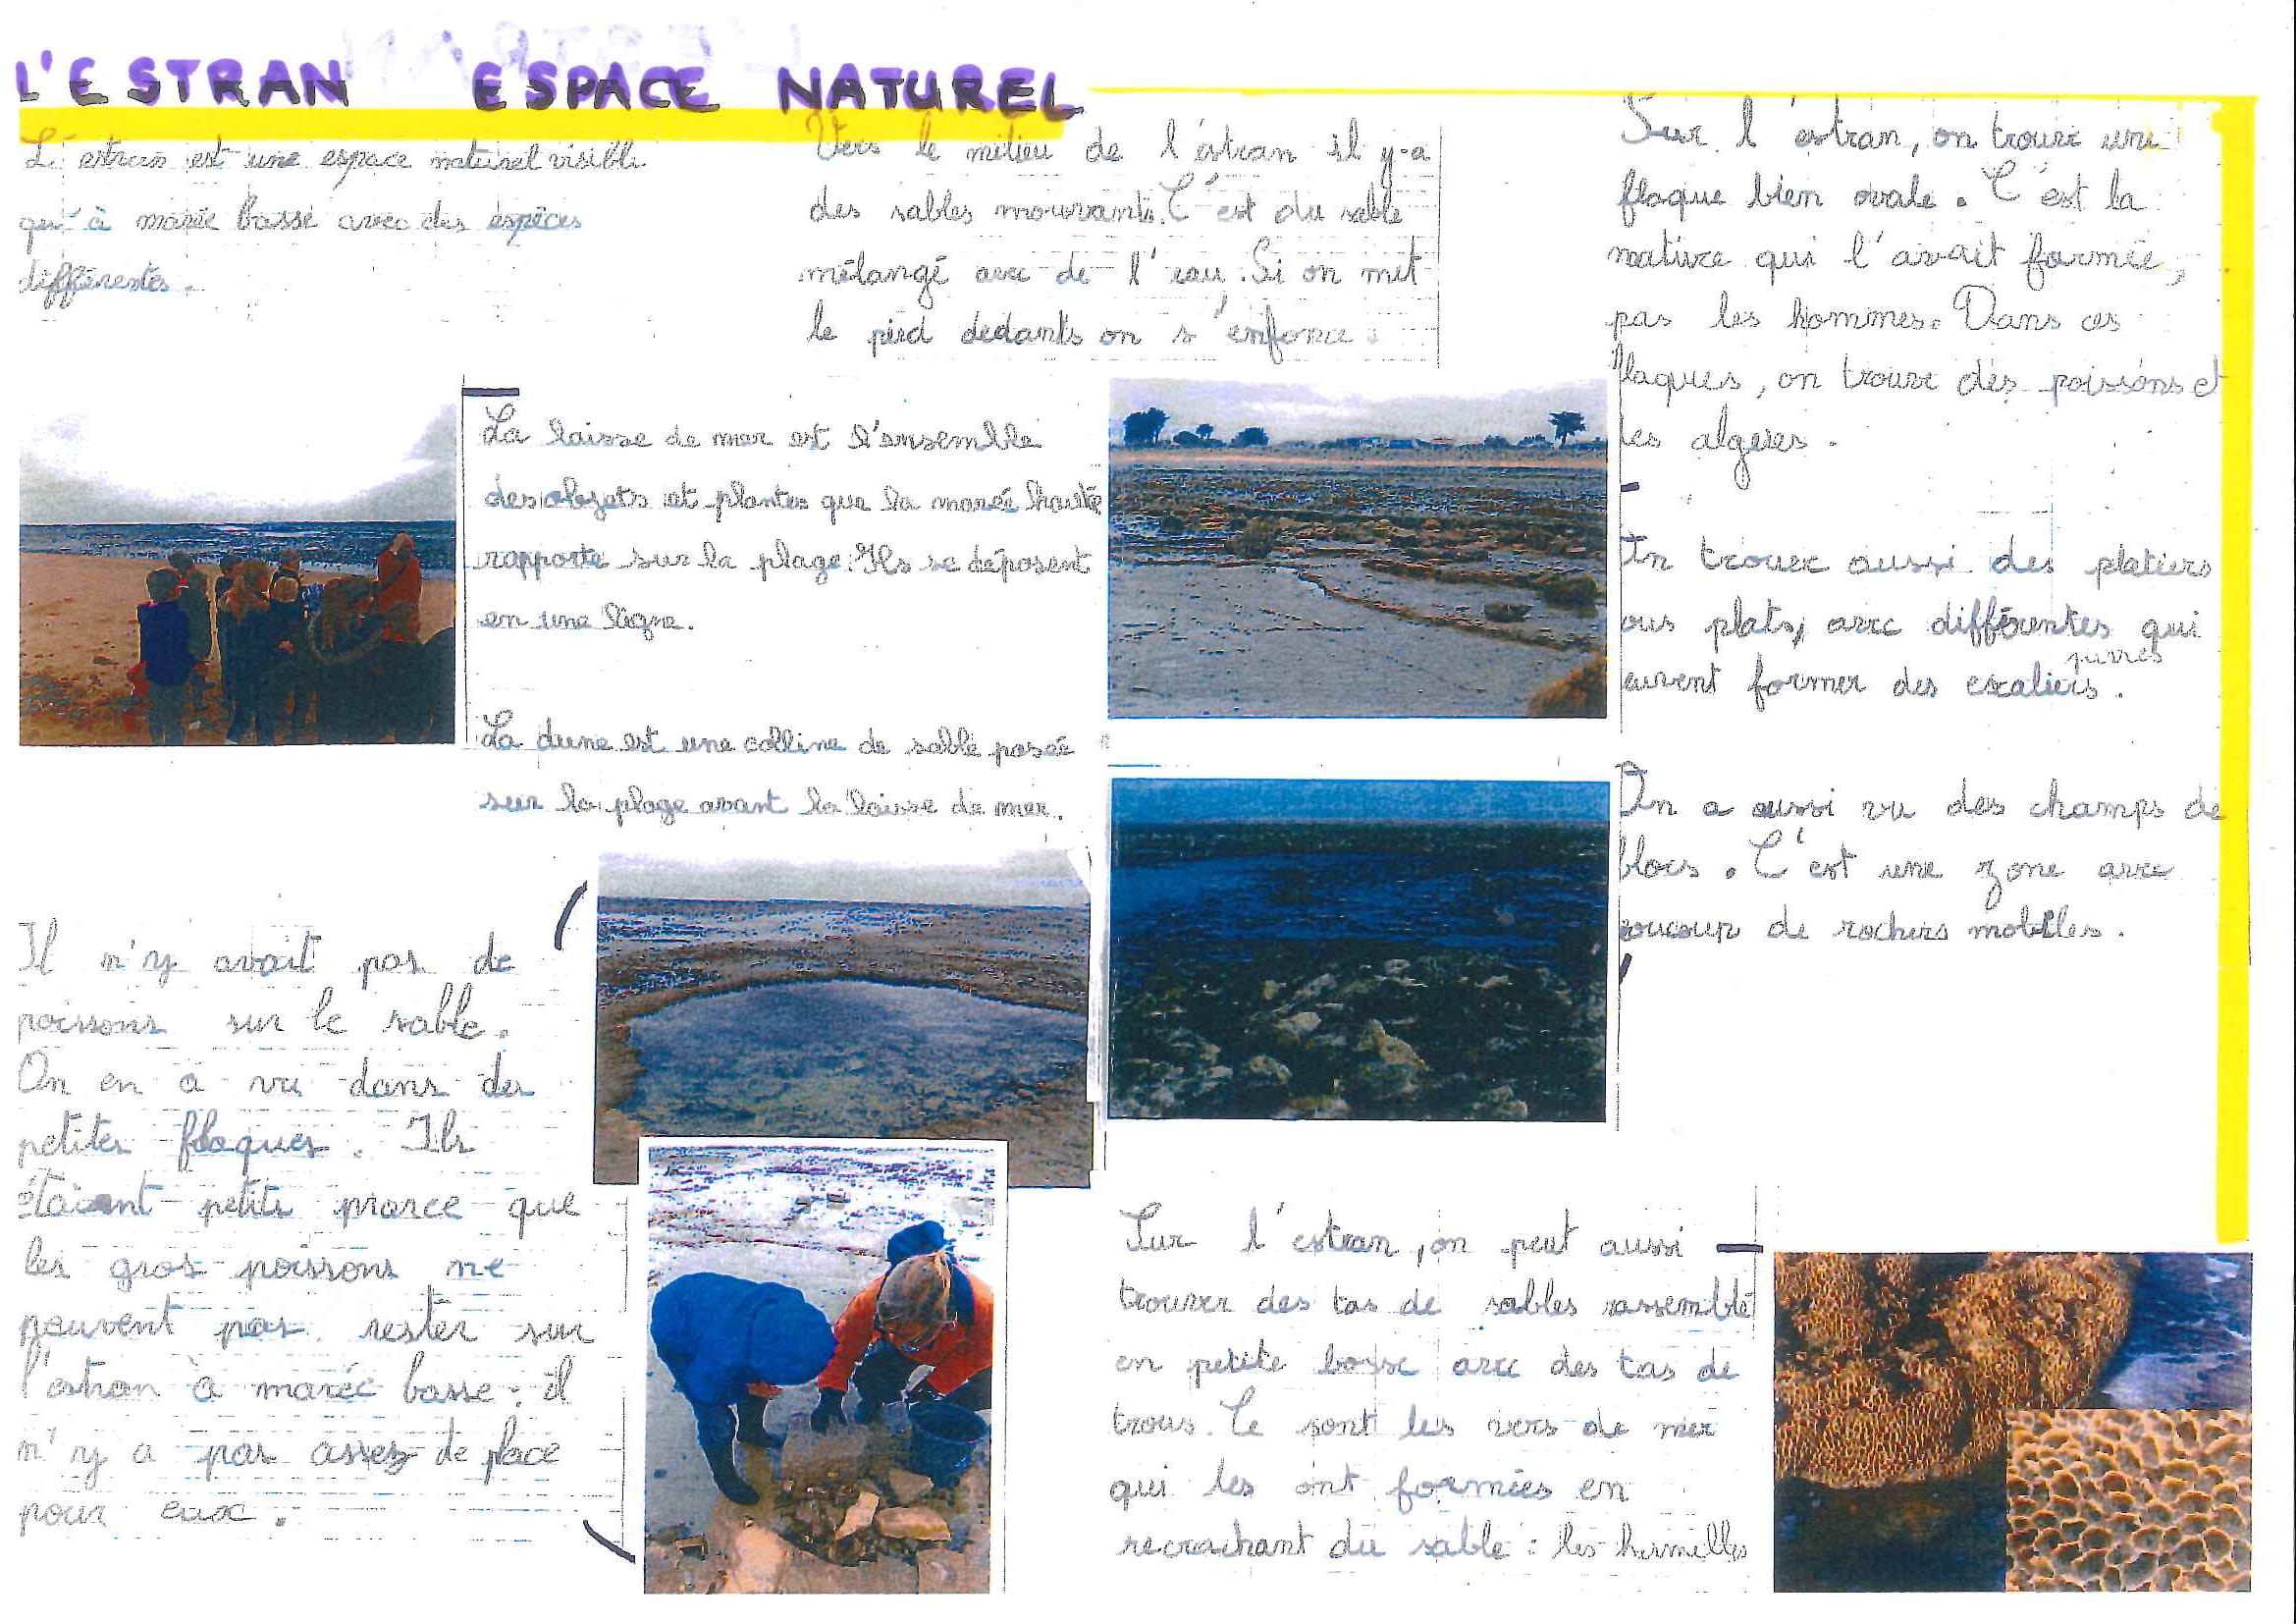 L'ESTRAN ESPACE NATUREL
L'estran est une espace naturel visible
qu'à marée basse avec des espèces
différentes.
La laisse de mer est l'ensemble
des objets et plantes que la marée haute
rapporte sur la plage. Ils se déposent
en une ligne.
La dune est une colline de sable posée
sur la plage avant la laisse de mer.
Il n'y avait pas de
poissons sur le sable.
On en a vu dans des
petites flaques. Ils
étaient petits prarce que
les gros poissons ne
peuvent pas rester sur
l'estran à marée basse : il
n'y a pas assez de place
pour eux.
Vers le milieu de l'éstran il y-a
des sables mouvants. C'est du sable
mélangé avec de l'eau. Si on met
le pied dedants on s'enfonce.
Sur l'estran, on trouve une
flaque bien ovale. C'est la
nature qui l'avait formée,
pas les hommes. Dans ces
flaques, on trouve des poissons et
les algues.
On trouve aussi des platiers
ous plats, avec différentes qui
pierres
euvent former des escaliers.
On a aussi vu des champs de
blocs. C'est une zone avec
eoucoup de rochers mobiles.
Sur l'estran, on peut aussi
trouver des tas de sables rassemblé
en petite bosse avec des tas de
trous. Ce sont les vers de mer
qui les ont formées en
recrachant du sable : les hermelles